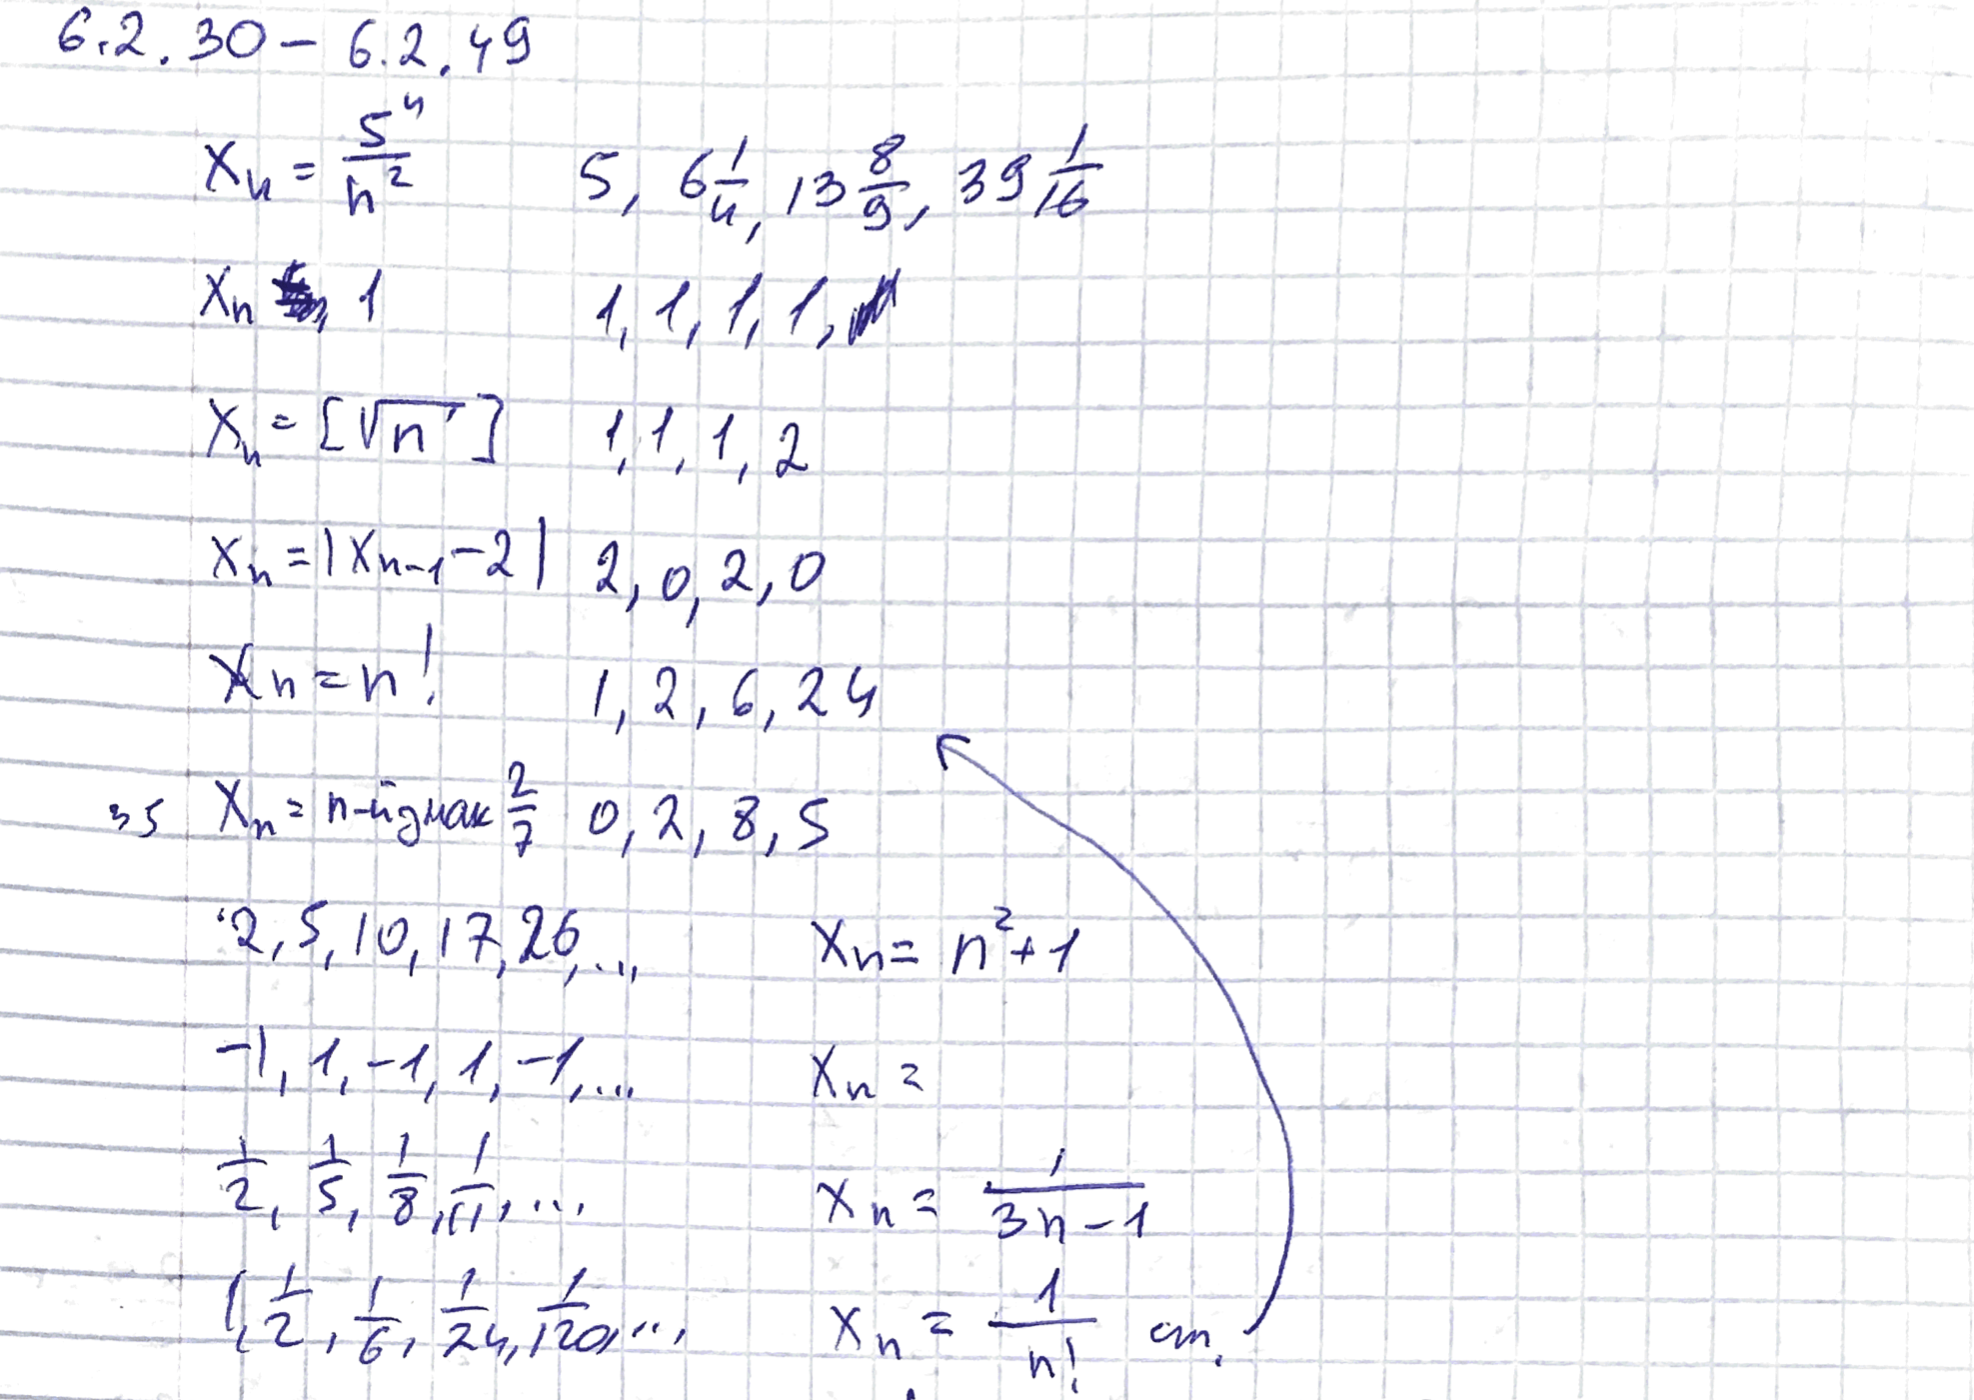 6.2.30 – 6.2.49
Xn = 5^n / n² 5, 6 1/4, 13 8/9, 39 1/16
Xn 1 1, 1, 1, 1,
Xn = [√n] 1, 1, 1, 2
Xn = |Xn-1 - 2| 2, 0, 2, 0
Xn = n! 1, 2, 6, 24
35 Xn = n-й знак 2/7 0, 2, 8, 5
2, 5, 10, 17, 26, ... Xn = n² + 1
-1, 1, -1, 1, -1, ... Xn =
1/2, 1/5, 1/8, 1/11, ... Xn = 1 / 3n - 1
1, 1/2, 1/6, 1/24, 1/120, ... Xn = 1 / n!